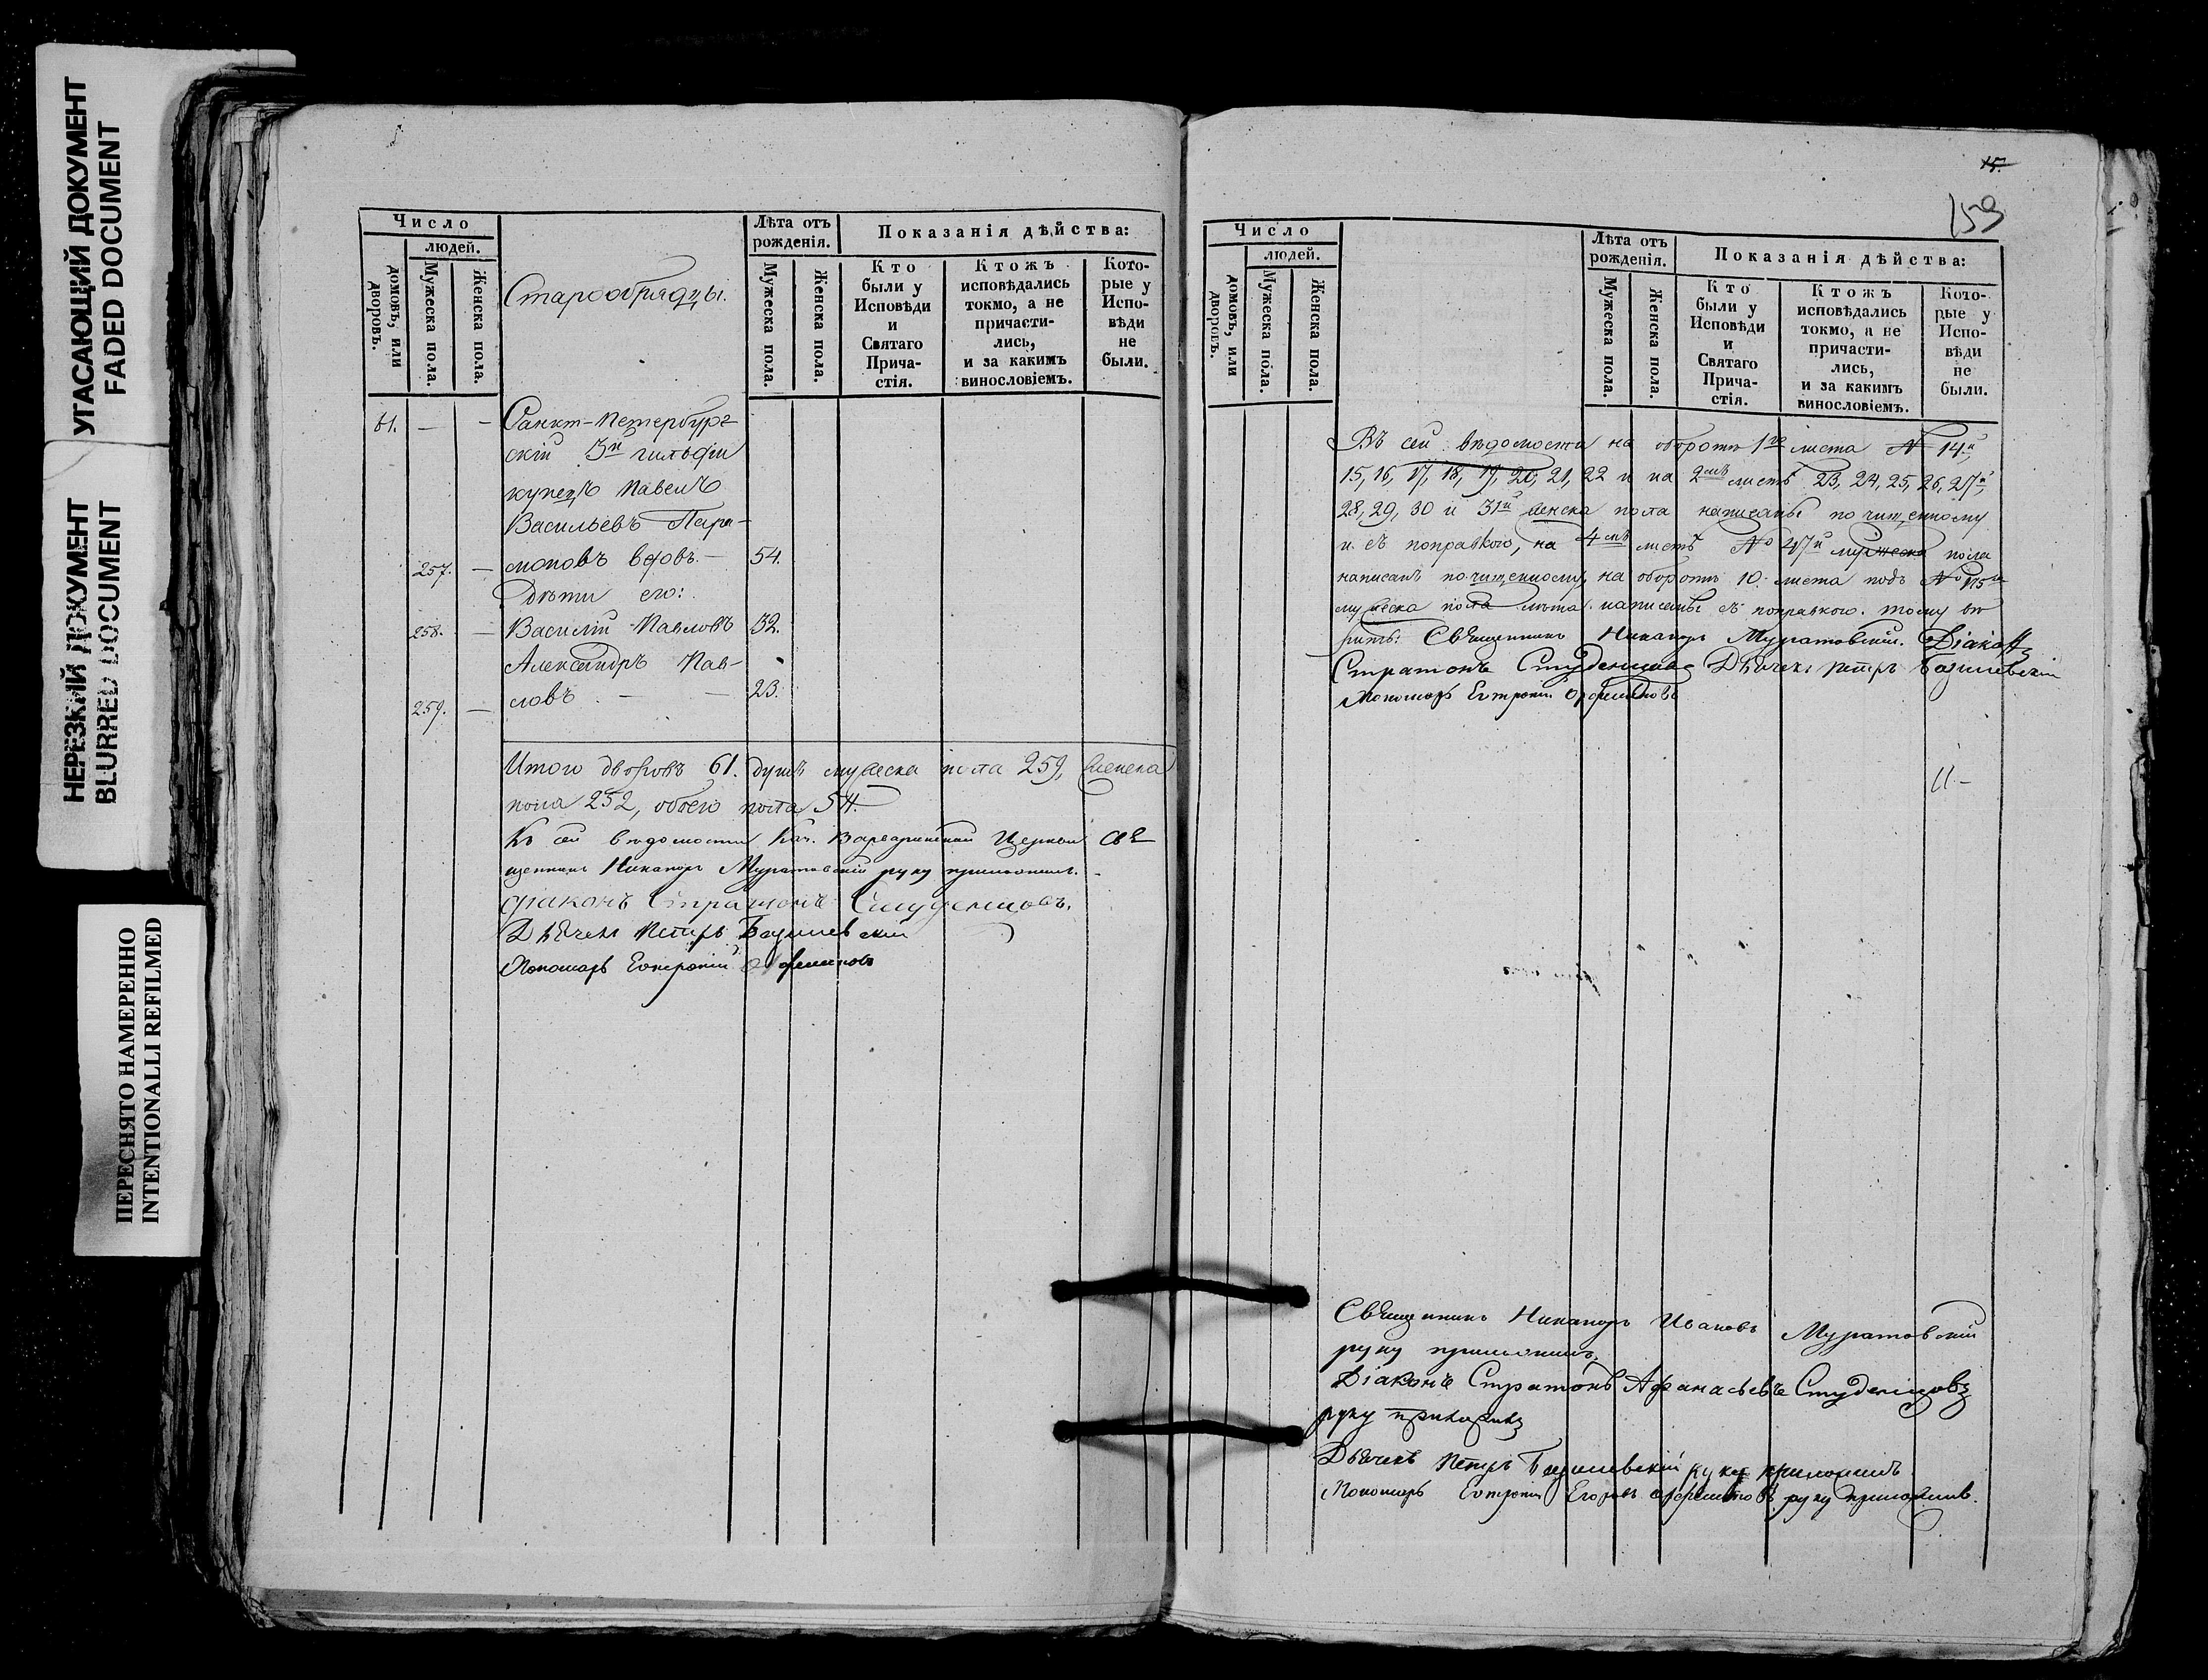 УГАСАЮЩИЙ ДОКУМЕНТ
FADED DOCUMENT
НЕРЕЗКИЙ ДОКУМЕНТ
BLURRED DOCUMENT
ПЕРЕСНЯТО НАМЕРЕННО
INTENTIONALLI REFILMED
Число
людей.
домовъ, или дворовъ.
Мужеска пола.
Женска пола.
Старообрядцы.
Лѣта отъ рожденія.
Мужеска пола.
Женска пола.
Показанія дѣйства:
Кто были у Исповѣди и Святаго Причастія.
Ктожъ исповѣдались токмо, а не причастились, и за какимъ винословіемъ.
Которые у Исповѣди не были.
61. — — Санкт-Петербург-
скій 3й гильдіи
купецъ Павелъ
Васильевъ Пара-
257. — моновъ вдовъ — 54.
Дѣти его:
258. — Василій Павловъ 32.
Александръ Пав-
259. — ловъ — — 23.
Итого дворовъ 61. душъ мужеска пола 259, женска
пола 252, обоего пола 511.
Къ сей вѣдомости Варваринской Церкви Свя
щенникъ Никаноръ Муратовскій руку приложилъ.
Діаконъ Стратонъ Студенцовъ.
Дьячекъ Петръ Базилевскій
Пономарь Евтропій
15.
159
Число
людей.
домовъ, или дворовъ.
Мужеска пола.
Женска пола.
Лѣта отъ рожденія.
Мужеска пола.
Женска пола.
Показанія дѣйства:
Кто были у Исповѣди и Святаго Причастія.
Ктожъ исповѣдались токмо, а не причастились, и за какимъ винословіемъ.
Которые у Исповѣди не были.
Въ сей вѣдомости на оборотѣ 1го листа № 14й,
15, 16, 17, 18, 19, 20, 21, 22 и на 2мъ листѣ 23, 24, 25, 26, 27й,
28, 29, 30 и 31й женска пола написаны по чищенному
и съ поправкою, на 4мъ листѣ № 47й мужеска пола
написанъ по чищенному, на оборотѣ 10. листа подъ № 175м
мужеска пола лѣта написаны съ поправкою. тому вѣ
рить: Священникъ Никаноръ Муратовскій. Діаконъ
Стратонъ Студенцовъ Дьячекъ Петръ Базилевскій
Пономарь Евтропій
11 —
Священникъ Никаноръ Ивановъ Муратовскій
руку приложилъ.
Діаконъ Стратонъ Афанасьевъ Студенцовъ
руку приложилъ
Дьячекъ Петръ Базилевскій руку приложилъ
Пономарь Евтропій Егоровъ руку приложилъ.